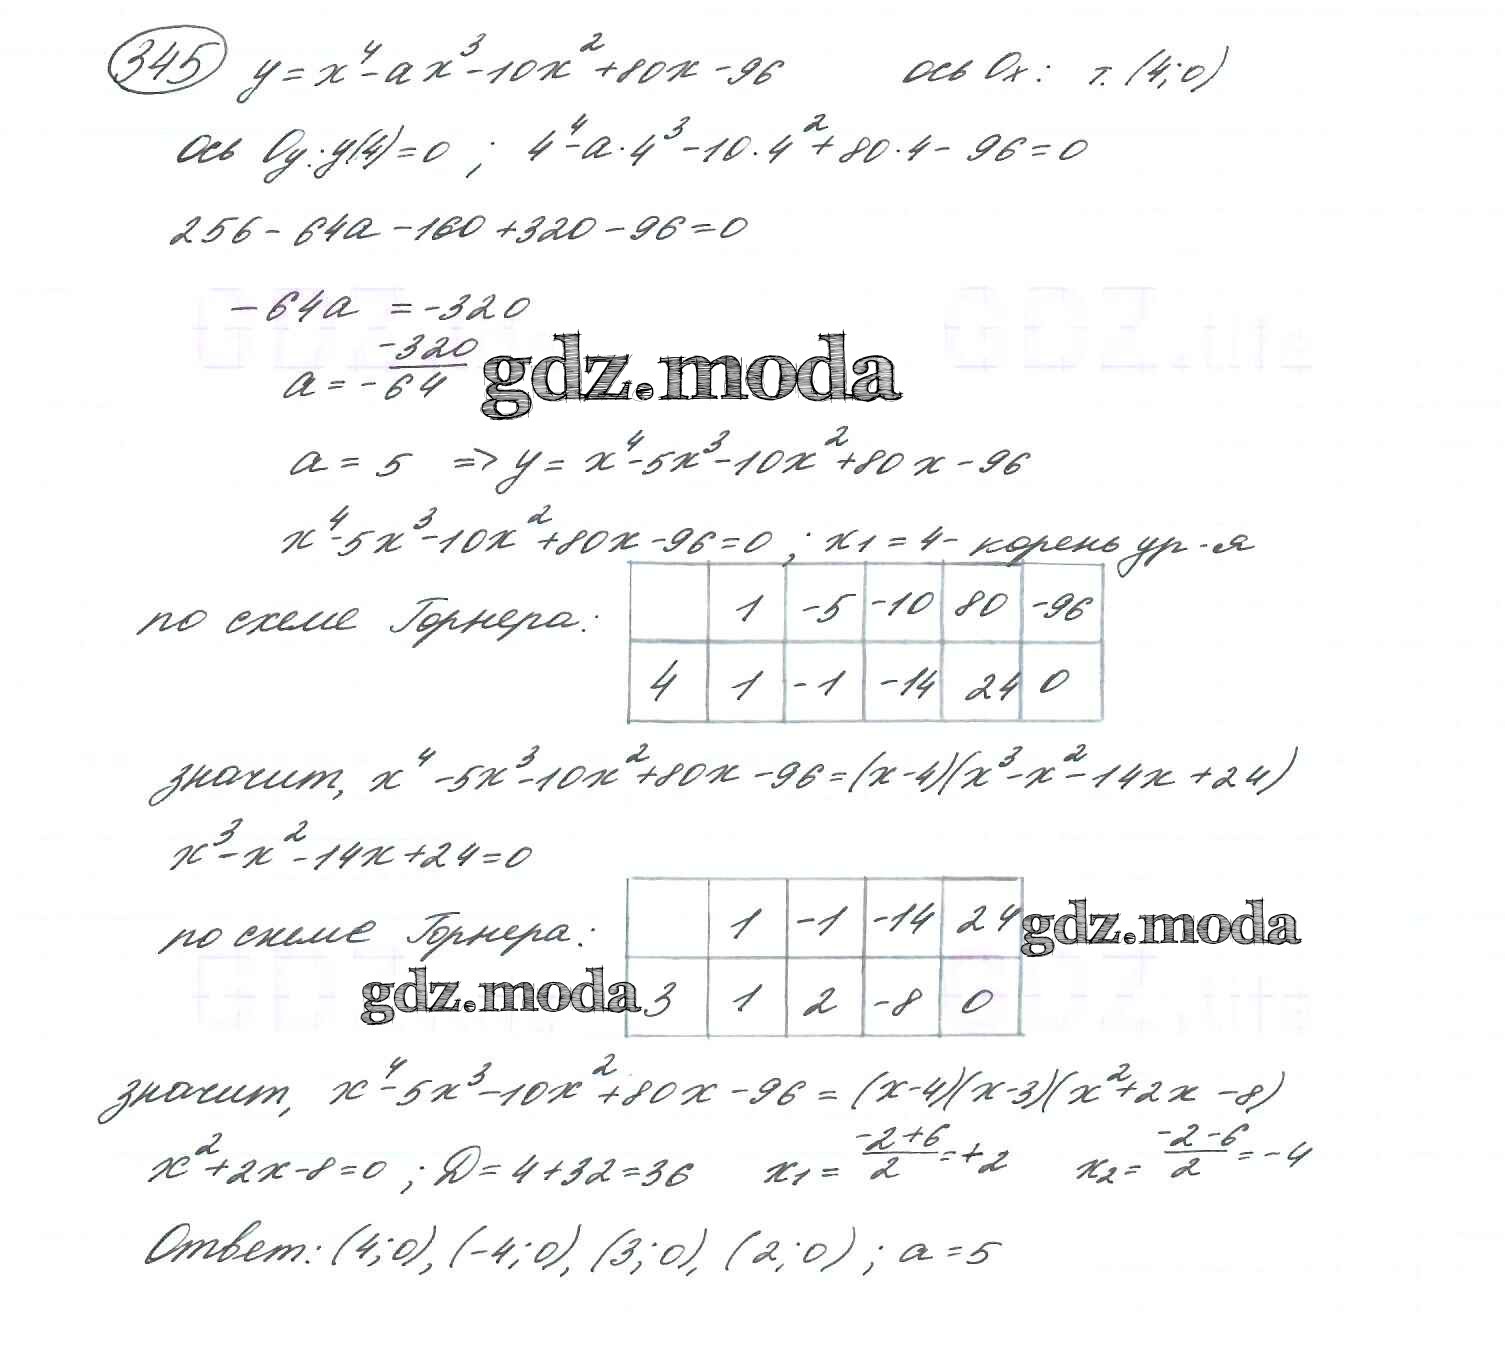 345 y = x⁴ - ax³ - 10x² + 80x - 96 ось Ox: т. (4; 0)
ось Oy: y(4) = 0 ; 4⁴ - a · 4³ - 10 · 4² + 80 · 4 - 96 = 0
256 - 64a - 160 + 320 - 96 = 0
- 64a = -320
a = -320/-64
gdz.moda
a = 5 => y = x⁴ - 5x³ - 10x² + 80x - 96
x⁴ - 5x³ - 10x² + 80x - 96 = 0 ; x₁ = 4 - корень ур-я
по схеме Горнера:
1 -5 -10 80 -96
4 1 -1 -14 24 0
значит, x⁴ - 5x³ - 10x² + 80x - 96 = (x - 4)(x³ - x² - 14x + 24)
x³ - x² - 14x + 24 = 0
по схеме Горнера:
1 -1 -14 24
gdz.moda
gdz.moda
3 1 2 -8 0
значит, x⁴ - 5x³ - 10x² + 80x - 96 = (x - 4)(x - 3)(x² + 2x - 8)
x² + 2x - 8 = 0 ; Д = 4 + 32 = 36 x₁ = (-2 + 6)/2 = +2 x₂ = (-2 - 6)/2 = -4
Ответ: (4; 0), (-4; 0), (3; 0), (2; 0) ; a = 5